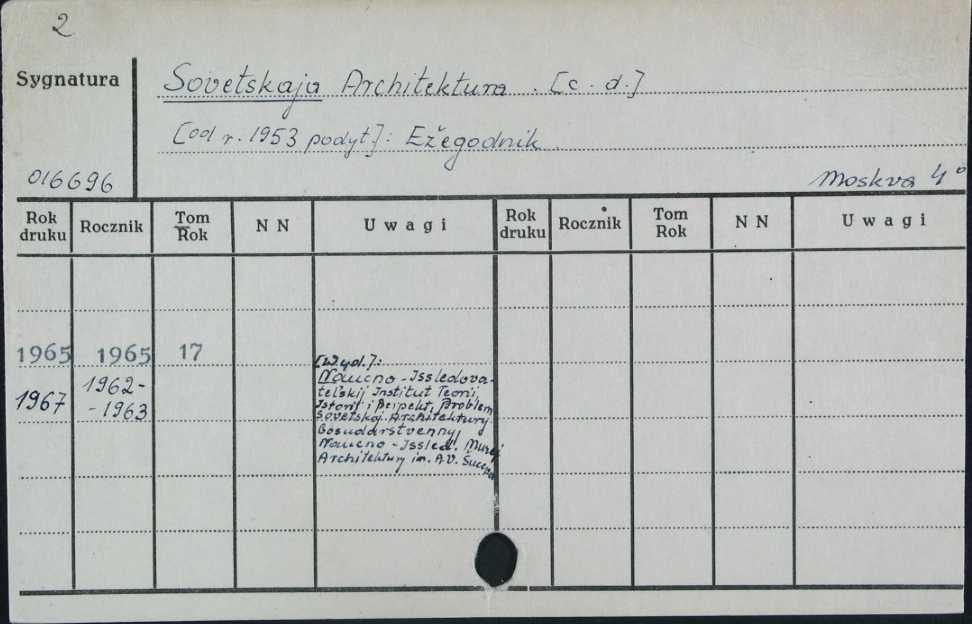 2
Sygnatura
Sovetskaja Architektura. [c. d.]
[od r. 1953 podyt]: Ežegodnik
016696
Moskva 4°
Rok druku Rocznik Tom Rok N N U w a g i Rok druku Rocznik Tom Rok N N U w a g i
1965 1965 17
1967 1962-
-1963
[Wyd.]:
Naucno-Issledova-
telskij Institut Teorii,
Istorii i Perpekt. Problem
Sovetskoj Architektury.
Gosudarstvennyj
Naucno-Issled. Muzej
Architektury im. A.V.